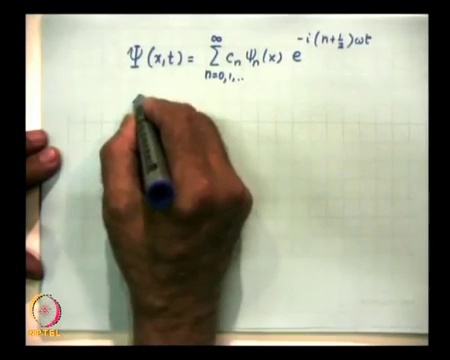 Ψ(x,t) = ∑_{n=0,1,..}^{∞} c_n ψ_n(x) e^{-i(n+½)ωt}
NPTEL